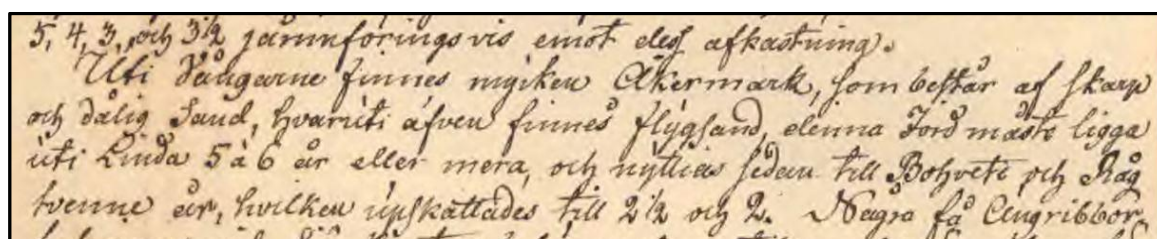 5, 4, 3, och 3 1/2 jämnföringsvis emot dess afkastning.
Uti Vångarne finnes myken Åkermark, som består af skarp
och dålig Sand, hvaruti äfven finnes flygsand, denna Jord måste ligga
uti Linda 5 à 6 år eller mera, och nyttias sedan till Bohvete och Råg
tvenne år, hvilken upskattades till 2 1/2 och 2. Några få Ängribbor